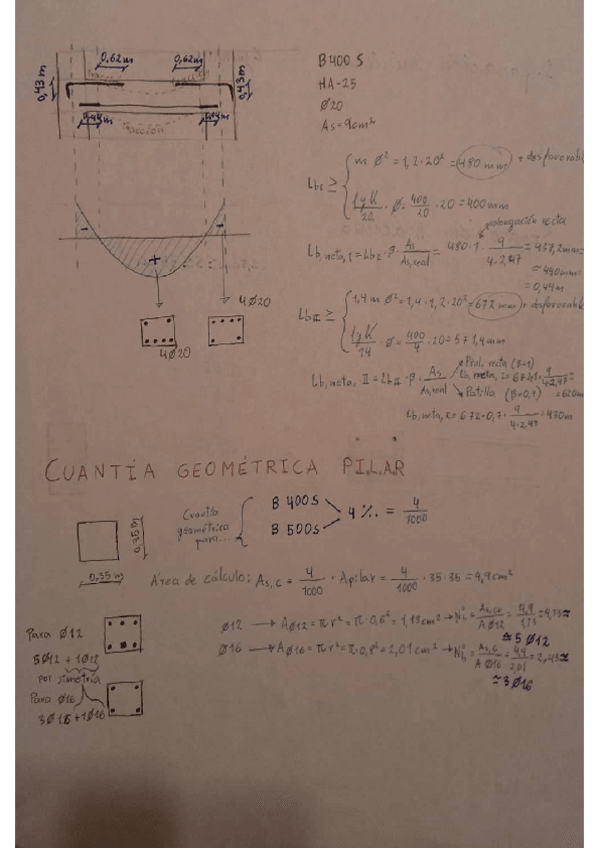 0,62m 0,62m
0,43m 0,43m
tracción
0,44m 0,44m
B 400 S
HA-25
Ø20
As = 9cm²
LbI ≥ m Ø² = 1,2·20² = 480 mm → + desfavorable
fyk/20 · Ø = 400/20 · 20 = 400mm
prolongación recta
Lb,neta,I = LbI · β · As/As,real = 480·1· 9/4·2,47 = 437,2mm =
≈ 440mm =
= 0,44m
- + -
4Ø20
4Ø20
LbII ≥ 1,4 m Ø² = 1,4·1,2·20² = 672 mm → + desfavorable
fyk/14 · Ø = 400/4 · 20 = 571,4mm
Lb,neta,II = LbII · β · As/As,real
Prol. recta (β=1)
= 620mm
Patilla (β=0,7)
Lb,neta, = 672·0,7· 9/4·2,47 = 430m
CUANTÍA GEOMÉTRICA PILAR
0,35m
0,35m
Cuantía geométrica para...
B 400S
B 500S
4 ‰ = 4/1000
Área de cálculo: As,c = 4/1000 · Apilar = 4/1000 · 35·35 = 4,9cm²
Para Ø12
5Ø12 + 1Ø12
por simetría
Para Ø16
3Ø16 + 1Ø16
Ø12 → AØ12 = πr² = π·0,6² = 1,13cm² → Nºb = As,c/AØ12 = 4,9/1,13 = 4,33 ≈
≈ 5 Ø12
Ø16 → AØ16 = πr² = π·0,8² = 2,01 cm² → Nºb = As,c/AØ16 = 4,9/2,01 = 2,43 ≈
≈ 3Ø16